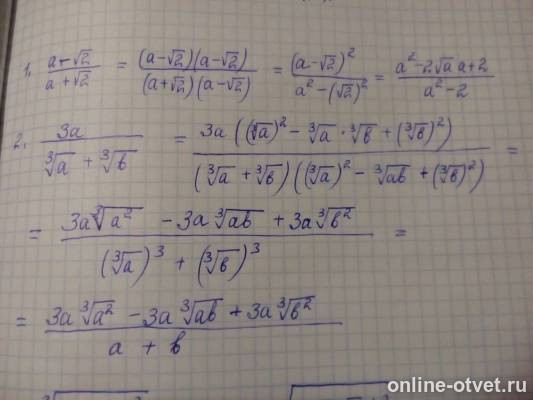 1. (a-√2)/(a+√2) = ((a-√2)(a-√2))/((a+√2)(a-√2)) = (a-√2)²/(a²-(√2)²) = (a²-2√a a+2)/(a²-2)
2. 3a/(∛a + ∛b) = 3a((∛a)² - ∛a · ∛b + (∛b)²)/((∛a + ∛b)((∛a)² - ∛ab + (∛b)²)) =
= (3a∛a² - 3a∛ab + 3a∛b²)/((∛a)³ + (∛b)³) =
= (3a∛a² - 3a∛ab + 3a∛b²)/(a + b)
online-otvet.ru